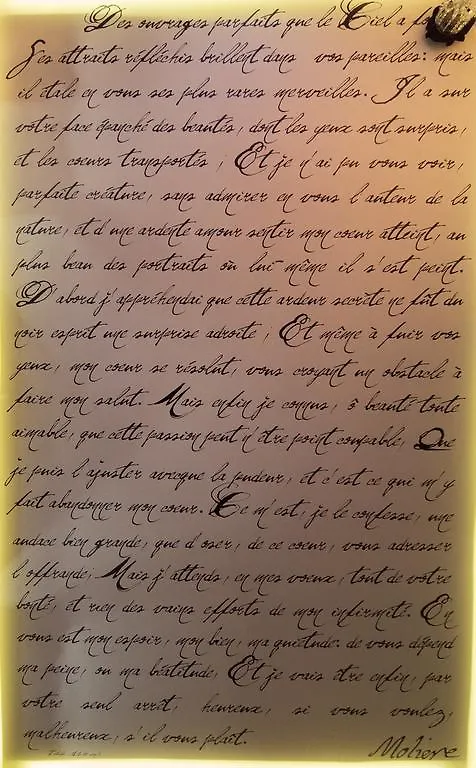 Des ouvrages parfaits que le Ciel a
Ses attraits réfléchis brillent dans vos pareilles: mais
il étale en vous ses plus rares merveilles. Il a sur
votre face épanché des beautés, dont les yeux sont surpris,
et les coeurs transportés; Et je n'ai pu vous voir,
parfaite créature, sans admirer en vous l'auteur de la
nature, et d'une ardente amour sentir mon coeur atteint, au
plus beau des portraits où lui-même il s'est peint.
D'abord j'appréhendai que cette ardeur secrète ne fût du
noir esprit une surprise adroite; Et même à fuir vos
yeux, mon coeur se résolut, vous croyant un obstacle à
faire mon salut. Mais enfin je connus, ô beauté toute
aimable, que cette passion peut n'être point coupable, Que
je puis l'ajuster avecque la pudeur, et c'est ce qui m'y
fait abandonner mon coeur. Ce m'est, je le confesse, une
audace bien grande, que d'oser, de ce coeur, vous adresser
l'offrande; Mais j'attends, en mes voeux, tout de votre
bonté, et rien des vains efforts de mon infirmité. En
vous est mon espoir, mon bien, ma quiétude. de vous dépend
ma peine, ou ma béatitude, Et je vais être enfin, par
votre seul arrêt, heureux, si vous voulez,
malheureux, s'il vous plaît.
Moliere